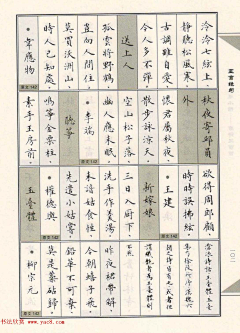 泠泠七絃上
靜聽松風寒
古調雖自愛
今人多不彈
送上人
孤雲將野鶴
豈向人間住
莫買沃洲山
時人已知處
韋應物
秋夜寄邱員
外
懷君屬秋夜
散步詠涼天
空山松子落
幽人應未眠
李端
聽箏
鳴箏金粟柱
素手玉房前
欲得周郎顧
時時誤拂絃
王建
新嫁娘
三日入廚下
洗手作羹湯
未諳姑食性
先遣小姑嘗
權德輿
玉臺體
昨夜裙帶解
今朝蟢子飛
鉛華不可棄
莫是藁砧歸
柳宗元
101